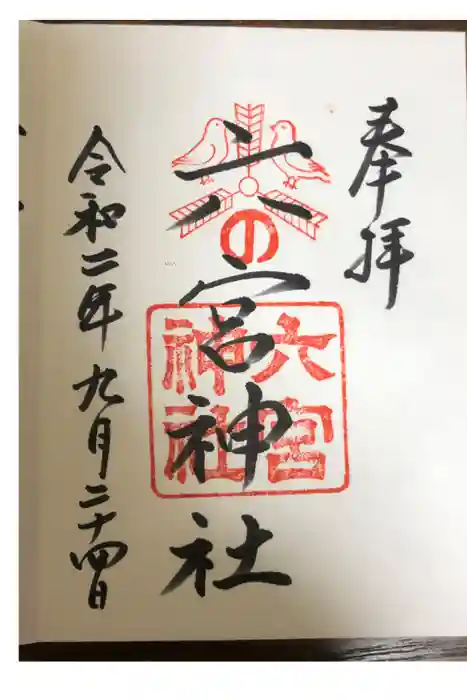 奉拝
六の宮神社
六宮
神社
令和二年九月二十四日